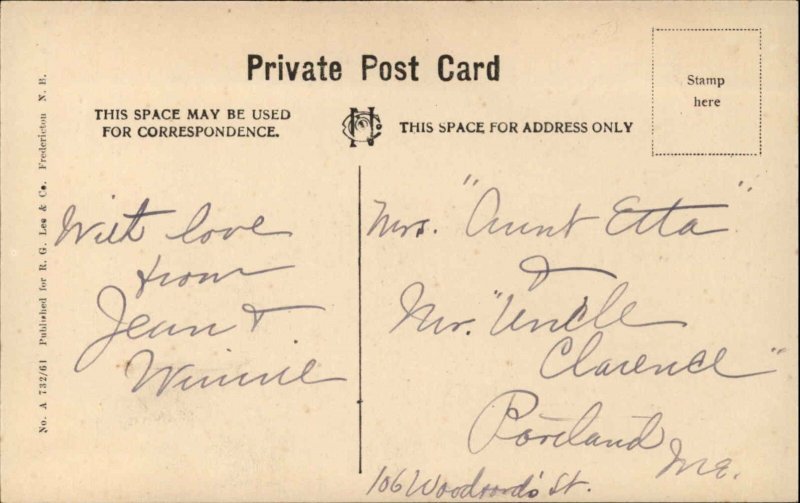 Private Post Card
Stamp
here
THIS SPACE MAY BE USED
FOR CORRESPONDENCE.
THIS SPACE FOR ADDRESS ONLY
No. A 732/61 Published for R. G. Lee & Co. Fredericton N. B.
With love
from
Jean &
Winnie
Mrs. "Aunt Etta"
&
Mr. "Uncle
Clarence"
Portland Me.
106 St.